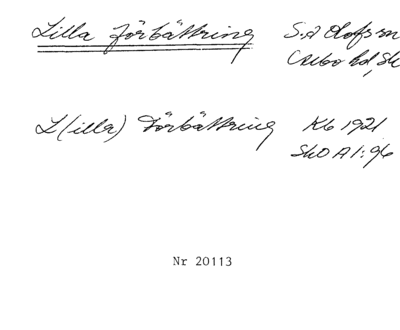 Lilla Förbättring S.A Olofsson
hd, Sk
L(illa) Förbättring Kb 1921
SkO A1:96
Nr 20113